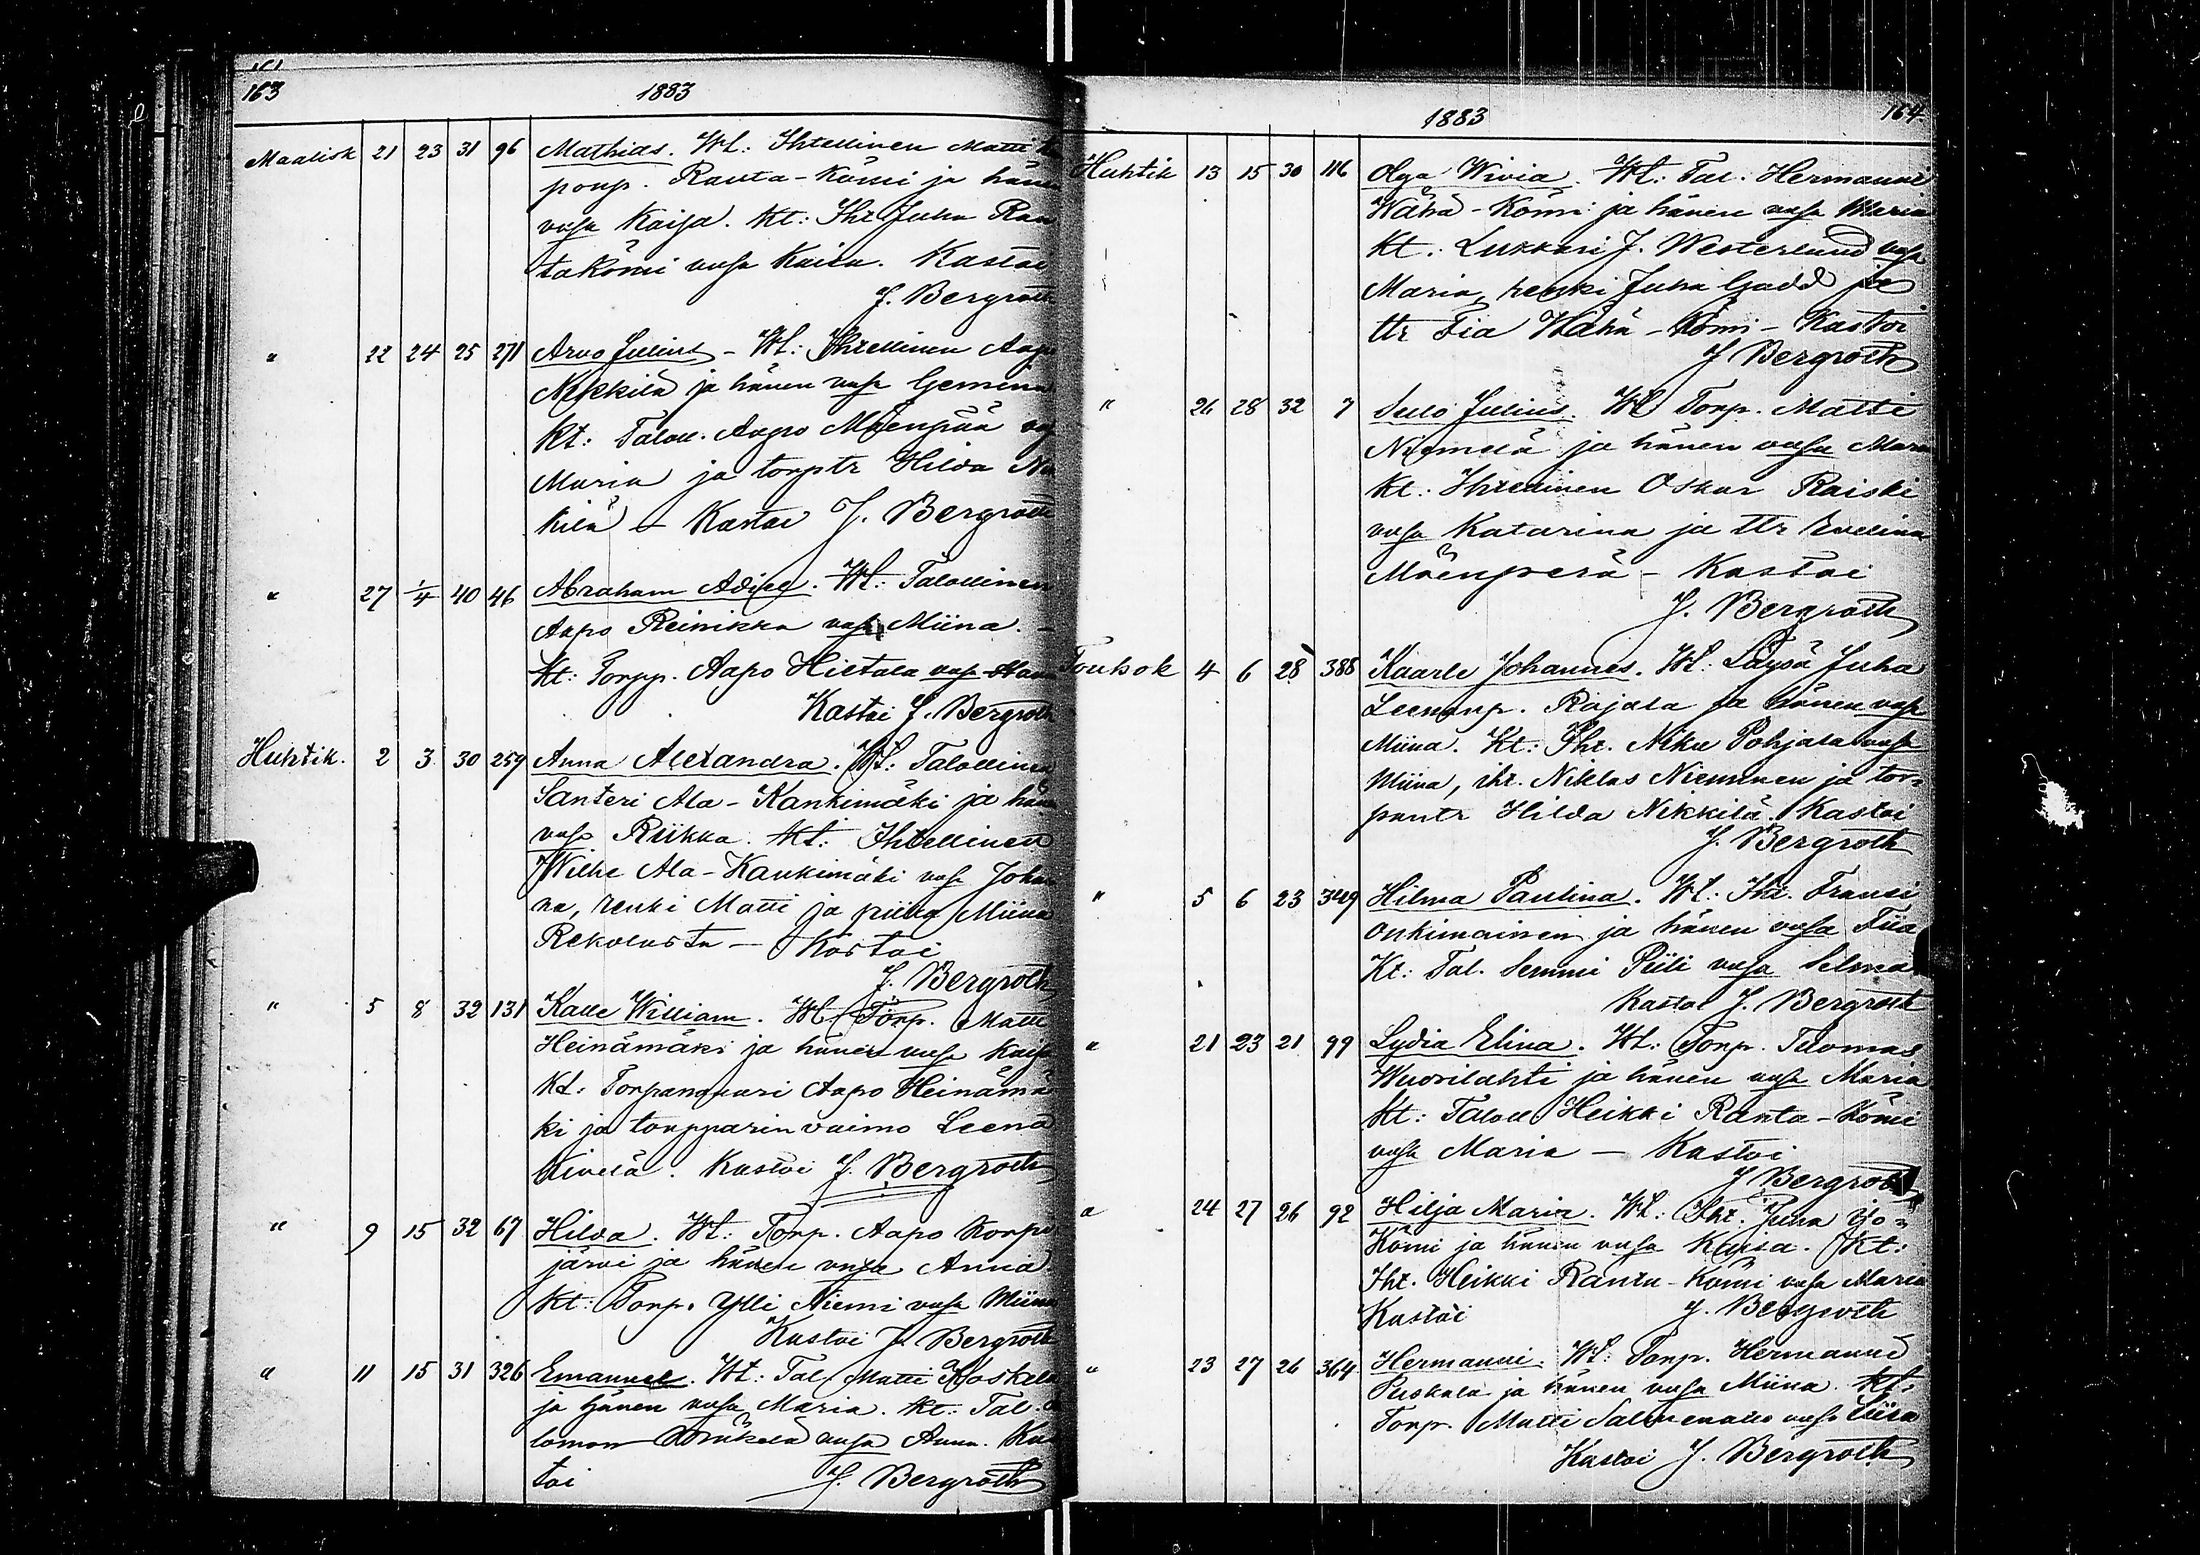 163 1883
Maalisk 21 23 31 96 Mathias. Wt: Ihtellinen Matti
poup. Ranta-Kömi ja hänen
vaſa Kaisa. Kt: Iht Juha Ran
takömi vaſa Kaisa. Kastoi
J. Bergroth
" 22 24 25 271 Arvo Julius - Wt: Ihtellinen Aapo
Nikkilä ja hänen vaſa Gemina
Kt: Taloll. Aapo Mäenpää
Maria ja torptr Hilda Nik
kilä - Kastoi J. Bergroth
" 27 1/4 40 46 Abraham. Wt: Talollinen
Aapo Reinikka vaſa Miina. -
Kt: Torpp. Aapo Hietala vaſa
Kastoi J. Bergroth
Huhtik. 2 3 30 259 Anna Alexandra. Wt: Talollinen
Santeri Ala-Kankimäki ja hänen
vaſa Riikka. Kt: Ihtellinen
Wilhe Ala-Kankimäki vaſa Johan
na, renki Matti ja piika Miina
Rekolasta - Kastoi
J. Bergroth
" 5 8 32 131 Kalle William. Wt Torp. Matti
Heinämäki ja hänen vaſa Kaisa
Kt: Torpanpuari Aapo Heinämä
ki ja torpparin vaimo Leena
Kivelä. Kastoi J. Bergroth
" 9 15 32 67 Hilda. Wt: Torp. Aapo Korpi
järvi ja hänen vaſa Anna
Kt: Torp. Ylli Niemi vaſa Miina
Kastoi J. Bergroth
" 11 15 31 326 Emanuel. Wt: Tal Matti Koskela
ja hänen vaſa Maria. Kt: Tal.
lomon Mäkelä vaſa Anna. Kas
toi J. Bergroth
1883 164
Huhtik 13 15 30 116 Olga Wivia. Wt: Tal. Hermanni
Wähä-Kömi ja hänen vaſa Maria
Kt: Lukkari J. Westerlund vaſa
Maria, renki Juha Gadd ja
ttr Fia Wähä-Kömi - Kastoi
J Bergroth
" 26 28 32 7 Sulo Julius. Wt Torp. Matti
Niemelä ja hänen vaſa Maria
Kt: Ihtellinen Oskar Raiski
vaſa Katarina ja ttr Evelina
Mäenperä - Kastoi
J. Bergroth
Toukok 4 6 28 388 Kaarle Johannes. Wt: Läysä Juha
Leenanp. Rajala ja hänen vaſa
Miina. Kt: Iht. Niku Pohjala vaſa
Miina, iht. Niklas Nieminen ja tor=
pantr Hilda Nikkilä. Kastoi
J. Bergroth
" 5 6 23 349 Hilma Paulina. Wt: Iht. Fransi
Onkimainen ja hänen vaſa Fiia
Kt: Tal. Semmi Piili vaſa Selma
Kastoi J. Bergroth
" 21 23 21 99 Lydia Elina. Wt: Torp. Tuomas
Wuorilahti ja hänen vaſa Maria
Kt: Taloll Heikki Ranta-Kömi
vaſa Maria - Kastoi
J Bergroth
" 24 27 26 92 Hilja Maria. Wt: Iht. Juha Yö=
Kömi ja hänen vaſa Kaisa. Kt:
Iht. Heikki Ranta-Kömi vaſa Maria
Kastoi J. Bergroth
" 23 27 26 364 Hermanni. Wt: Torp. Hermanni
Puskala ja hänen vaſa Miina. Kt:
Torp. Matti vaſa Liisa
Kastoi J. Bergroth